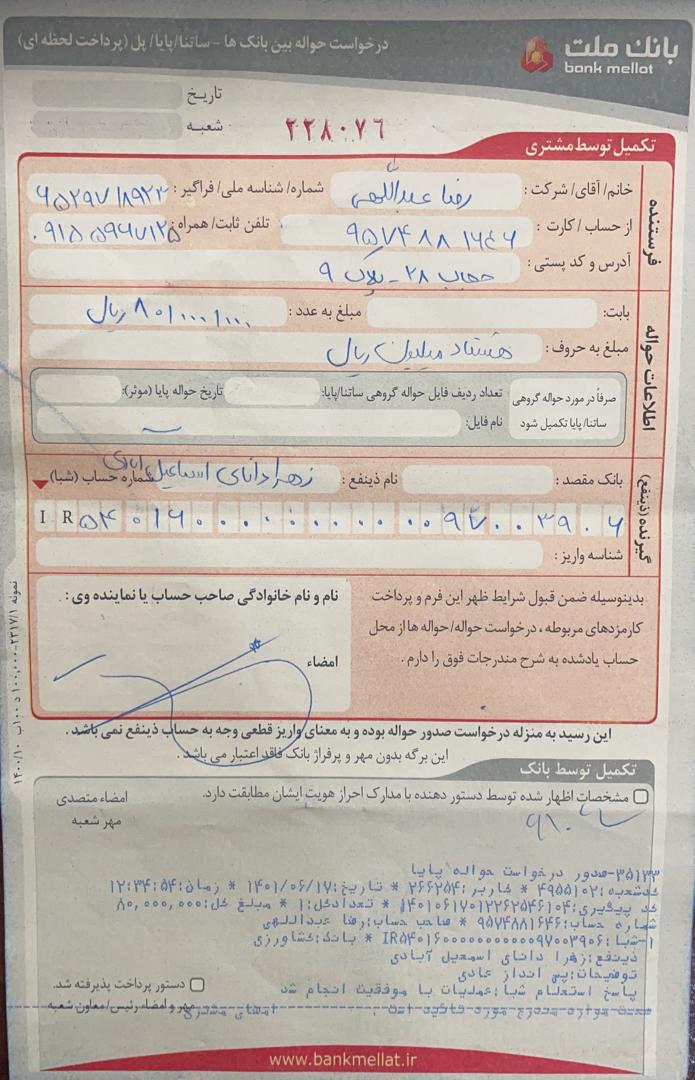 بانک ملت
bank mellat
درخواست حواله بین بانک ها - ساتنا/پایا/ پل (پرداخت لحظه ای)
تاریخ
شعبه
۲۲۸۰۷۶
تکمیل توسط مشتری
فرستنده
خانم/ آقای/ شرکت: رضا عبداللهی شماره/ شناسه ملی/ فراگیر: ۶۵۲۹۷۱۸۹۲۳
از حساب/ کارت: ۹۵۷۴۸۸۱۶۴۶ تلفن ثابت/ همراه: ۰۹۱۵۵۹۶۷۱۲۵
آدرس و کد پستی: حجاب ۲۸ - پلاک ۹
اطلاعات حواله
بابت: مبلغ به عدد: ۸۰/۰۰۰/۰۰۰ ریال
مبلغ به حروف: هشتاد میلیون ریال
صرفاً در مورد حواله گروهی ساتنا/ پایا تکمیل شود
تعداد ردیف فایل حواله گروهی ساتنا/پایا: تاریخ حواله پایا (موثر):
نام فایل:
گیرنده (ذینفع)
بانک مقصد: نام ذینفع: زهرا دانای اسماعیل ابادی شماره حساب (شبا)
IR ۵۴۰۱۶۰۰۰۰۰۰۰۰۰۰۰۹۷۰۰۳۹۰۶
شناسه واریز:
بدینوسیله ضمن قبول شرایط ظهر این فرم و پرداخت
کارمزدهای مربوطه، درخواست حواله/ حواله ها از محل
حساب یادشده به شرح مندرجات فوق را دارم.
نام و نام خانوادگی صاحب حساب یا نماینده وی:
امضاء
این رسید به منزله درخواست صدور حواله بوده و به معنای واریز قطعی وجه به حساب ذینفع نمی باشد.
این برگه بدون مهر و پرفراژ بانک فاقد اعتبار می باشد.
تکمیل توسط بانک
مشخصات اظهار شده توسط دستور دهنده با مدارک احراز هویت ایشان مطابقت دارد.
امضاء متصدی
مهر شعبه
۳۵۱۳۳-صدور درخواست حواله پایا
کدشعبه:۴۹۵۵۱۰۲ * کاربر:۲۶۶۲۵۴ * تاریخ:۱۴۰۱/۰۶/۱۷ * زمان:۱۲:۳۴:۵۴
کد پیگیری:۱۴۰۱۰۶۱۷۰۱۲۲۶۲۵۴۶۱۰۴ * تعدادکل:۱ * مبلغ کل:۸۰,۰۰۰,۰۰۰
شماره حساب:۹۵۷۴۸۸۱۶۴۶ * صاحب حساب:رضا عبداللهی
۱-شبا:IR۵۴۰۱۶۰۰۰۰۰۰۰۰۰۰۰۹۷۰۰۳۹۰۶ * بانک:کشاورزی
ذینفع:زهرا دانای اسمعیل آبادی
توضیحات:پس انداز عادی
پاسخ استعلام شبا:عملیات با موفقیت انجام شد
صحت موارد مندرج مورد تائید است. امضای مشتری
دستور پرداخت پذیرفته شد.
مهر و امضاء رئیس/ معاون شعبه
www.bankmellat.ir